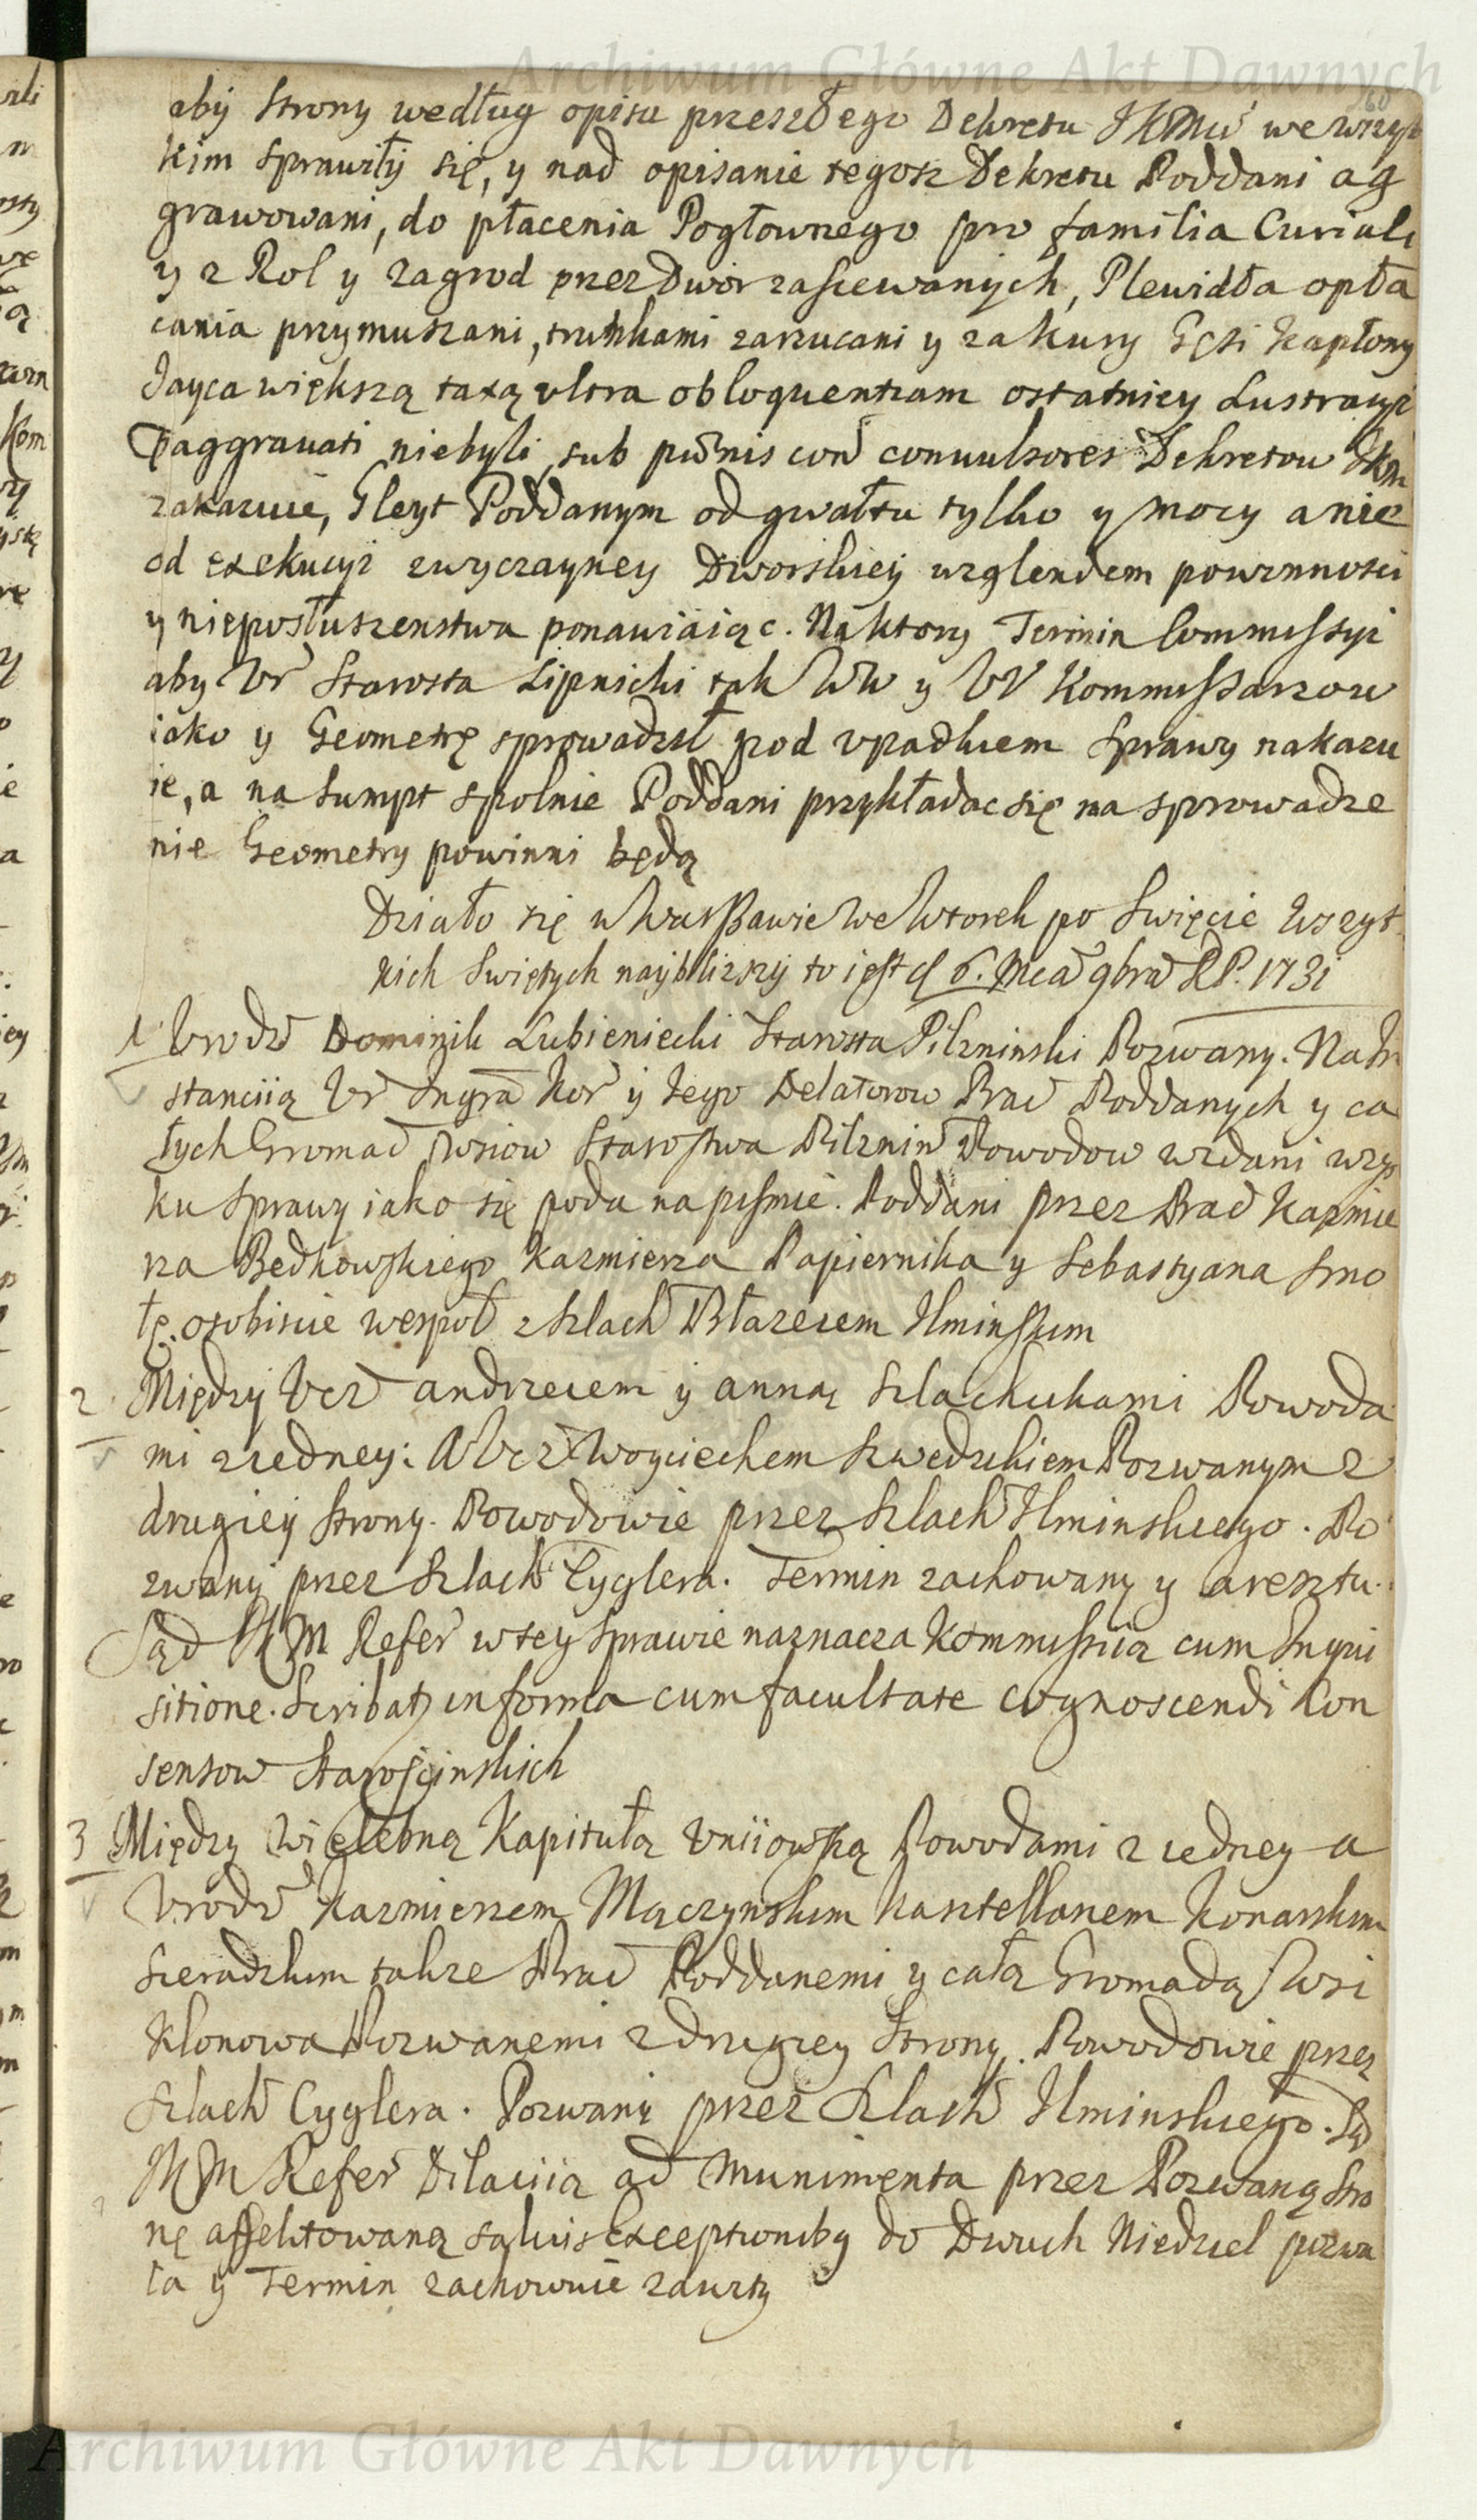 Archiwum Główne Akt Dawnych
60
aby Strony według opisu przeszłego Dekretu JKMci we wszyt
kim sprawiły się, y nad opisanie tegosz Dekretu Poddani ag
grawowani, do płacenia Pogłownego pro familia Curiali
y z Rol y zagrod przez Dwor zasiewanych, Plewidła opła
cania przymuszani, trunkami zarzucani y za kury Gęsi kapłony
Jayca większą taxą ultra obloquentiam ostatniey Lustracyi
aggravati niebyli, sub pœnis con convulsores Dekretow JKM
zakazuie, Gleyt Poddanym od gwałtu tylko y mocy a nie
od exekucyi zwyczayney Dworskiey wzglendem powinnosci
y nieposłuszenstwa ponawiaiąc. Na ktory Termin Commissyi
aby Ur Starosta Lipnicki tak WW y UU Kommissarzow
iako y Geometrę sprowadził pod upadkiem Sprawy nakazu
ie, a na sumpt spolnie Poddani przykładac się na sprowadze
nie Geometry powinni będą
Działo się w Warszawie We Wtorek po Swięcie Wszyt
kich Swiętych nayblizszy to iest d 6. Mca 9bra RP. 1731
1 Urodz Dominik Lubieniecki Starosta Pilzninski Pozwany. Na In
stancyią Ur Insgra Kor y Jego Delatorow Prac Poddanych y ca
łych Gromad Wsiow Starostwa Pilznin Powodow wzdani wzys
ku Sprawy iako się poda na pismie. Poddani przez Prac Kazmie
rza Bedkowskiego Kazmierza Papiernika y Sebastyana Smo
łę. osobiscie wespoł z Szlach Błazeiem Ilminskim
2 Między Ucz andrzeiem y anną Szlachcikami Powoda
mi z iedney: A Ucz Woyciechem Szwedzkiem Pozwanym z
drugiey Strony. Powodowie przez Szlach Ilminskiego. Po
zwany przez Szlach Cyglera. Termin zachowany y aresztu.
Sąd JKM Refer w tey Sprawie naznacza Kommissią cum Inqui
sitione. Scribatr in forma cum facultate cognoscendi Kon
sensow Starościnskich
3 Między Wielebną Kapitułą Uniiowską Powodami z iedney a
Urodz Kazmierzem Mączynskim Kasztellanem Konarskim
Sieradzkim takze Prac Poddanemi y całą Gromadą Wsi
Klonowa Pozwanemi z drugiey Strony. Powodowie przez
Szlach Cyglera. Pozwani przez Szlach Ilminskiego. Sąd
JKM Refer Dilacyią ad Munimenta przez Pozwaną Stro
nę affektowaną salvis Exceptionibg do Dwuch Niedziel pozwa
la y Termin zachowuie zawzty
Archiwum Główne Akt Dawnych